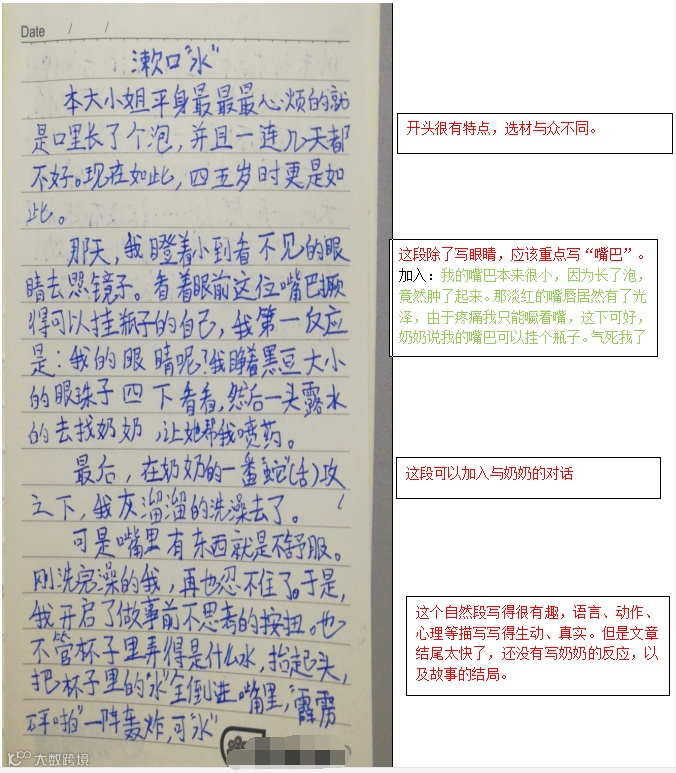 Date / /
漱口"水"
本大小姐平身最最最心烦的就
是口里长了个泡,并且一连几天都
不好。现在如此,四五岁时更是如
此。
那天,我瞪着小到看不见的眼
睛去照镜子。看着眼前这位嘴巴撅
得可以挂瓶子的自己,我第一反应
是:我的眼睛呢?我睁着黑豆大小
的眼珠子四下看看,然后一头露水
的去找奶奶,让她帮我喷药。
最后,在奶奶的一番蛇(舌)攻
之下,我灰溜溜的洗澡去了。
可是嘴里有东西就是不舒服。
刚洗完澡的我,再也忍不住了。于是,
我开启了做事前不思考的按扭。也
不管杯子里弄得是什么水,抬起头,
把杯子里的"水"全倒进嘴里,"霹雳
砰啪"一阵轰炸,可"水"
开头很有特点,选材与众不同。
这段除了写眼睛,应该重点写“嘴巴”。
加入:我的嘴巴本来很小,因为长了泡,
竟然肿了起来。那淡红的嘴唇居然有了光
泽,由于疼痛我只能噘着嘴,这下可好,
奶奶说我的嘴巴可以挂个瓶子。气死我了
这段可以加入与奶奶的对话
这个自然段写得很有趣,语言、动作、
心理等描写写得生动、真实。但是文章
结尾太快了,还没有写奶奶的反应,以
及故事的结局。
大数跨境